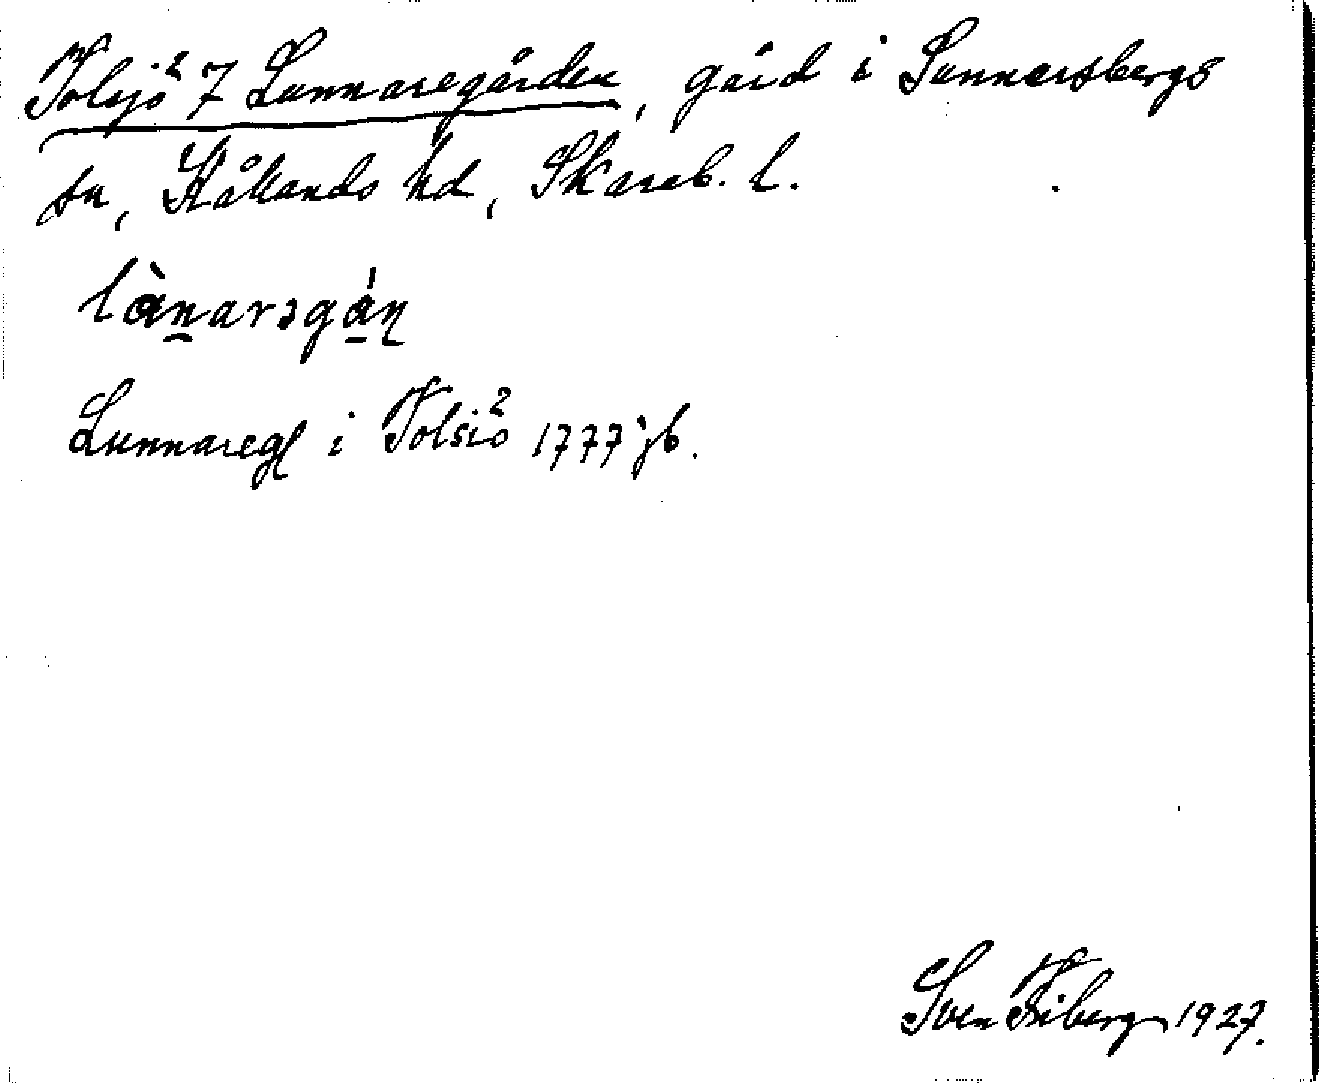 Tolsjö² 7 Lunnaregården, gård i Sunnersbergs
sn, Kållands hd, Skarab. l.
lànarəgán
Lunnaregl i Tolsiö² 1777 jb.
Sven Fiberg 1927.